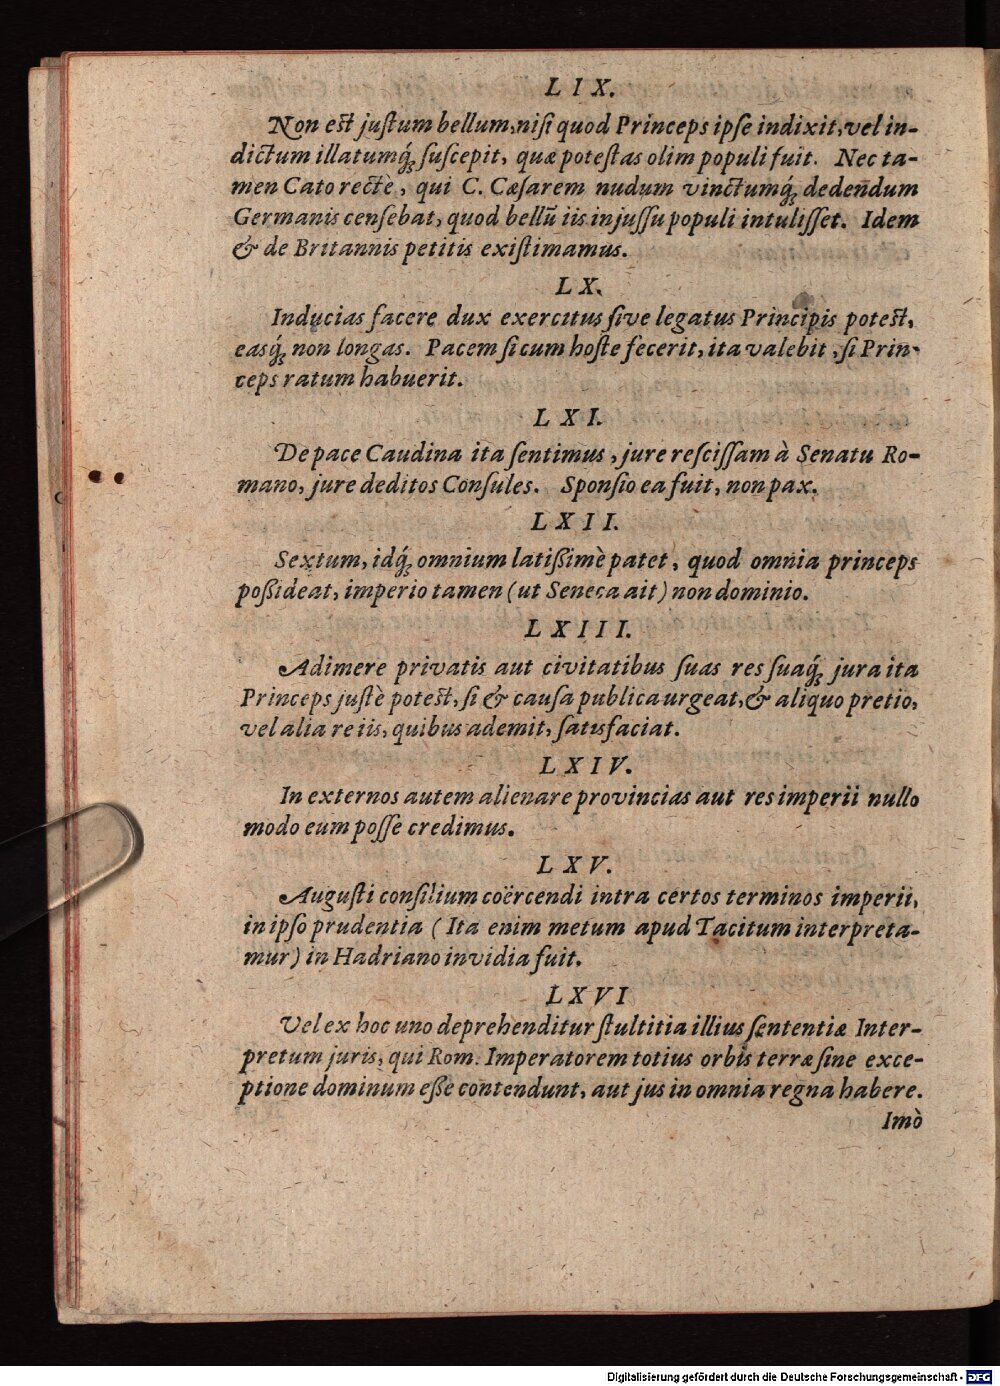 L I X.
Non est juſtum bellum, niſi quod Princeps ipſe indixit, vel in-
dictum illatumq́; ſuſcepit, quæ poteſtas olim populi fuit. Nec ta-
men Cato rectè, qui C. Cæſarem nudum vinctumq́; dedendum
Germanis cenſebat, quod bellū iis injuſſu populi intuliſſet. Idem
& de Britannis petitis exiſtimamus.
L X.
Inducias facere dux exercitus ſive legatus Principis potest,
easq́; non longas. Pacem ſi cum hoſte fecerit, ita valebit, ſi Prin-
ceps ratum habuerit.
L X I.
De pace Caudina ita ſentimus, jure reſciſſam à Senatu Ro-
mano, jure deditos Conſules. Sponſio ea fuit, non pax.
L X I I.
Sextum, idq́; omnium latißimè patet, quod omnia princeps
poßideat, imperio tamen (ut Seneca ait) non dominio.
L X I I I.
Adimere privatis aut civitatibus ſuas res ſuaq́; jura ita
Princeps juſtè potest, ſi & cauſa publica urgeat, & aliquo pretio,
vel alia re iis, quibus ademit, ſatisfaciat.
L X I V.
In externos autem alienare provincias aut res imperii nullo
modo eum poſſe credimus.
L X V.
Auguſti conſilium coërcendi intra certos terminos imperii,
in ipſo prudentia (Ita enim metum apud Tacitum interpreta-
mur) in Hadriano invidia fuit.
L X V I
Vel ex hoc uno deprehenditur ſtultitia illius ſententiæ Inter-
pretum juris, qui Rom. Imperatorem totius orbis terræ ſine exce-
ptione dominum eſſe contendunt, aut jus in omnia regna habere.
Imò
Digitalisierung gefördert durch die Deutsche Forschungsgemeinschaft - DFG